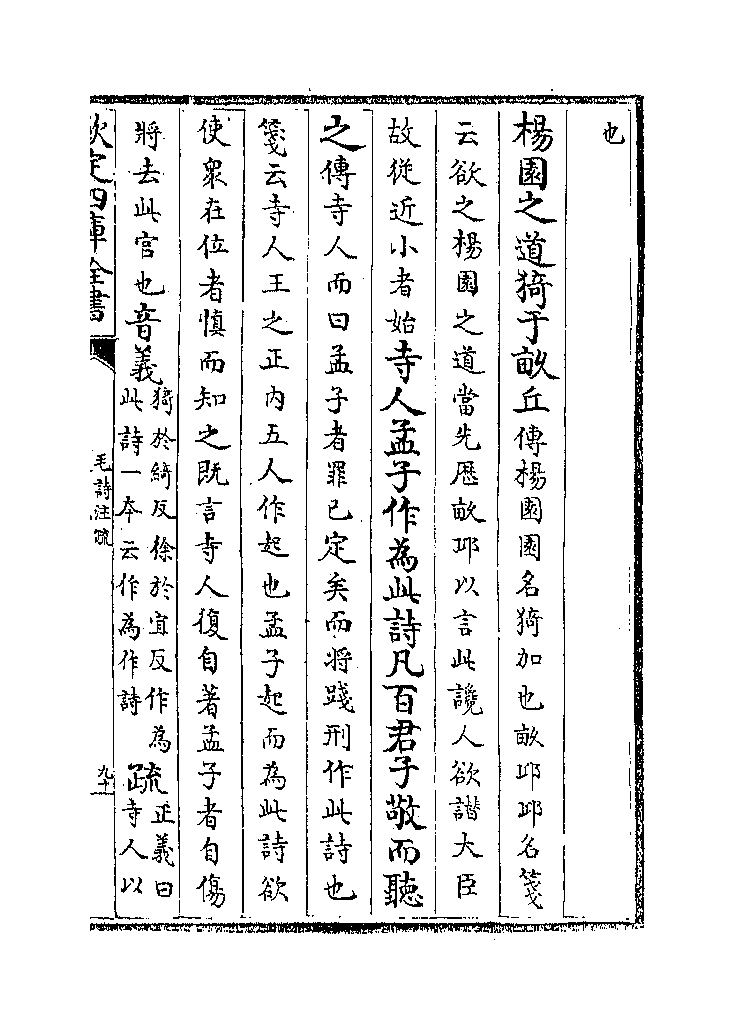 也
楊園之道猗于畝丘傳楊園園名猗加也畝邱邱名箋
云欲之楊園之道當先歷畝邱以言此讒人欲譖大臣
故從近小者始寺人孟子作為此詩凡百君子敬而聽
之傳寺人而曰孟子者罪已定矣而將踐刑作此詩也
箋云寺人王之正内五人作起也孟子起而為此詩欲
使衆在位者慎而知之既言寺人復自著孟子者自傷
將去此官也音義猗於綺反徐於宜反作為此詩一本云作為作詩疏正義曰寺人以
欽定四庫全書
毛詩注疏
九十一